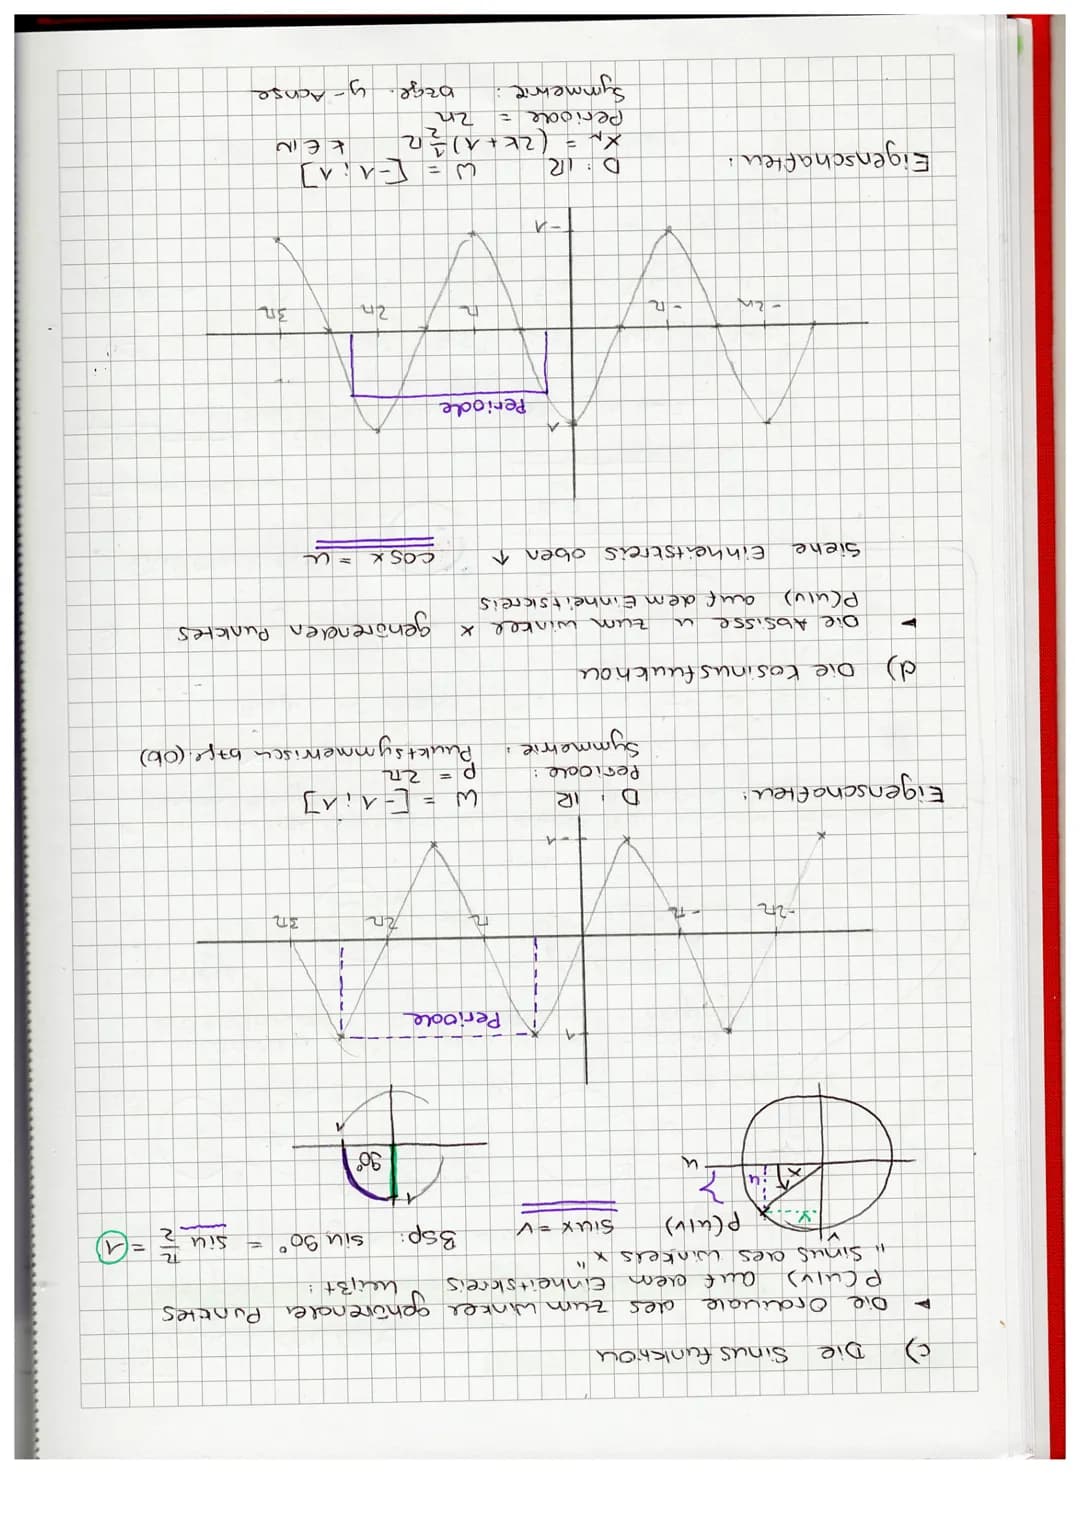 c) Die Sinusfunktion
► Die Ordinate des zum Winkel gehörender Punktes
P(u|v) auf dem Einheitskreis heißt:
"Sinus des Winkels x"
P(u|v) sin x = v Bsp: sin 90° = sin π/2 = 1
v
v
x
u
u
90°
1
Periode
1
-2π -π π 2π 3π
-1
Eigenschaften: D: ℝ W = [-1; 1]
Periode: p = 2π
Symmetrie: Punktsymmetrisch bzgl. (0|0)
d) Die Kosinusfunktion
► Die Absisse u zum Winkel x gehörenden Punktes
P(u|v) auf dem Einheitskreis
Siehe Einheitskreis oben ↑ cos x = u
1
Periode
-2π -π π 2π 3π
-1
Eigenschaften: D: ℝ W = [-1; 1]
x_N = (2k+1) 1/2 π k ∈ ℕ
Periode = 2π
Symmetrie: bzgl. y-Achse